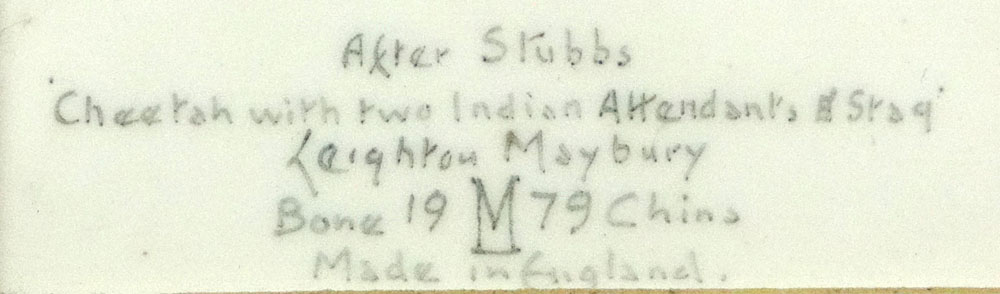 After Stubbs
'Cheetah with two Indian Attendants & Stag'
Leighton Maybury
Bone 19 M 79 China
Made in England.